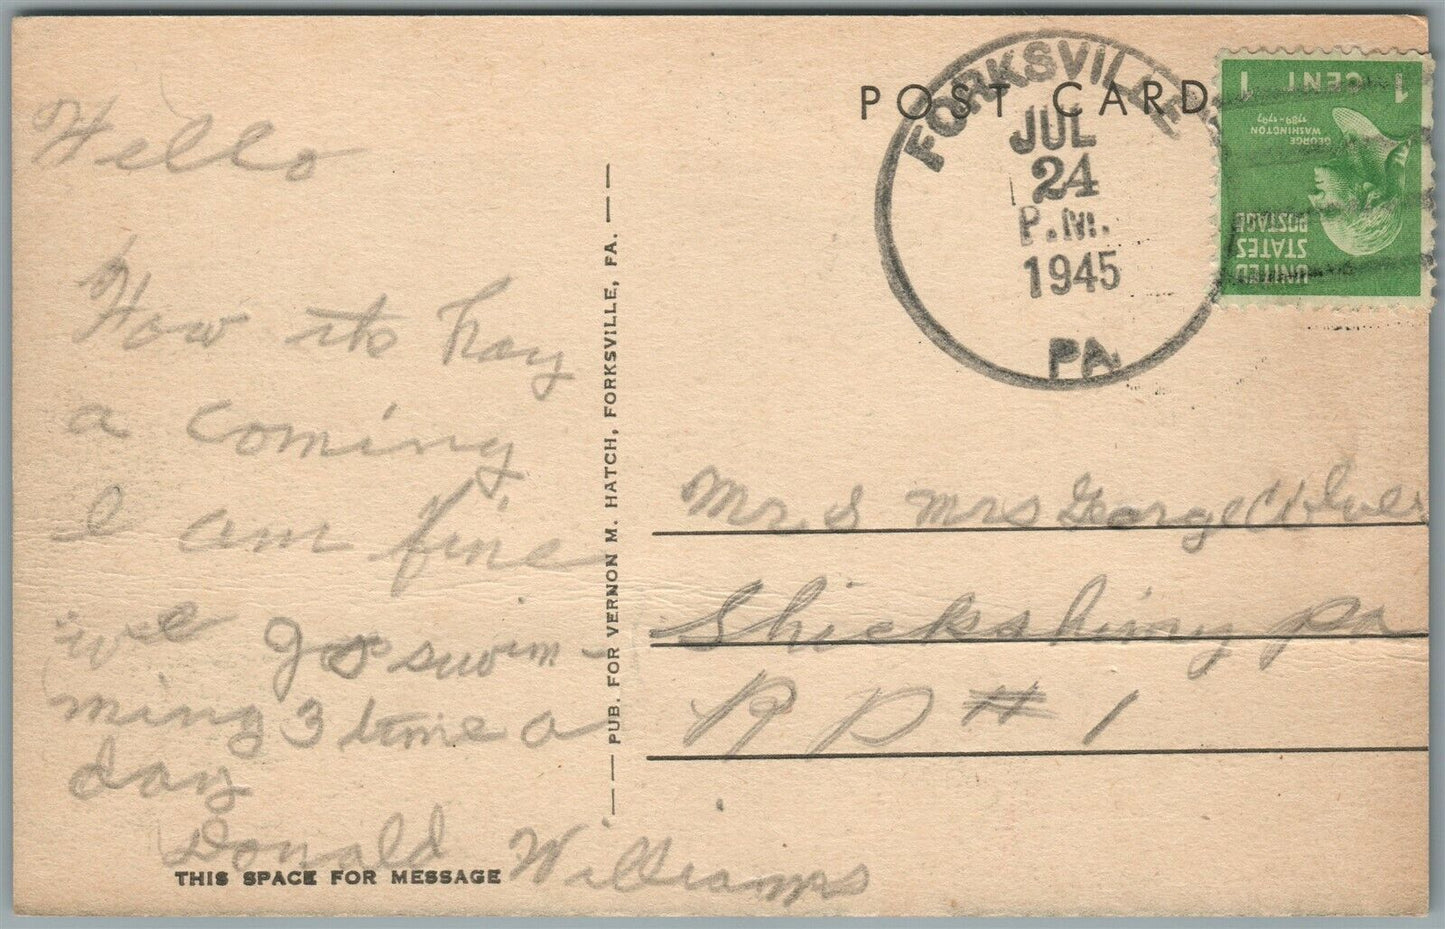 POST CARD
FORKSVILLE
JUL
24
P.M.
1945
PA.
1 CENT 1
GEORGE
WASHINGTON
1789-1797
UNITED
STATES
POSTAGE
Hello
How its hay
a coming
I am fine
we go swim-
ming 3 time a
day
Donald Williams
THIS SPACE FOR MESSAGE
PUB. FOR VERNON M. HATCH, FORKSVILLE, PA.
Mr. & mrs George
Shickshinny pa
R D # 1